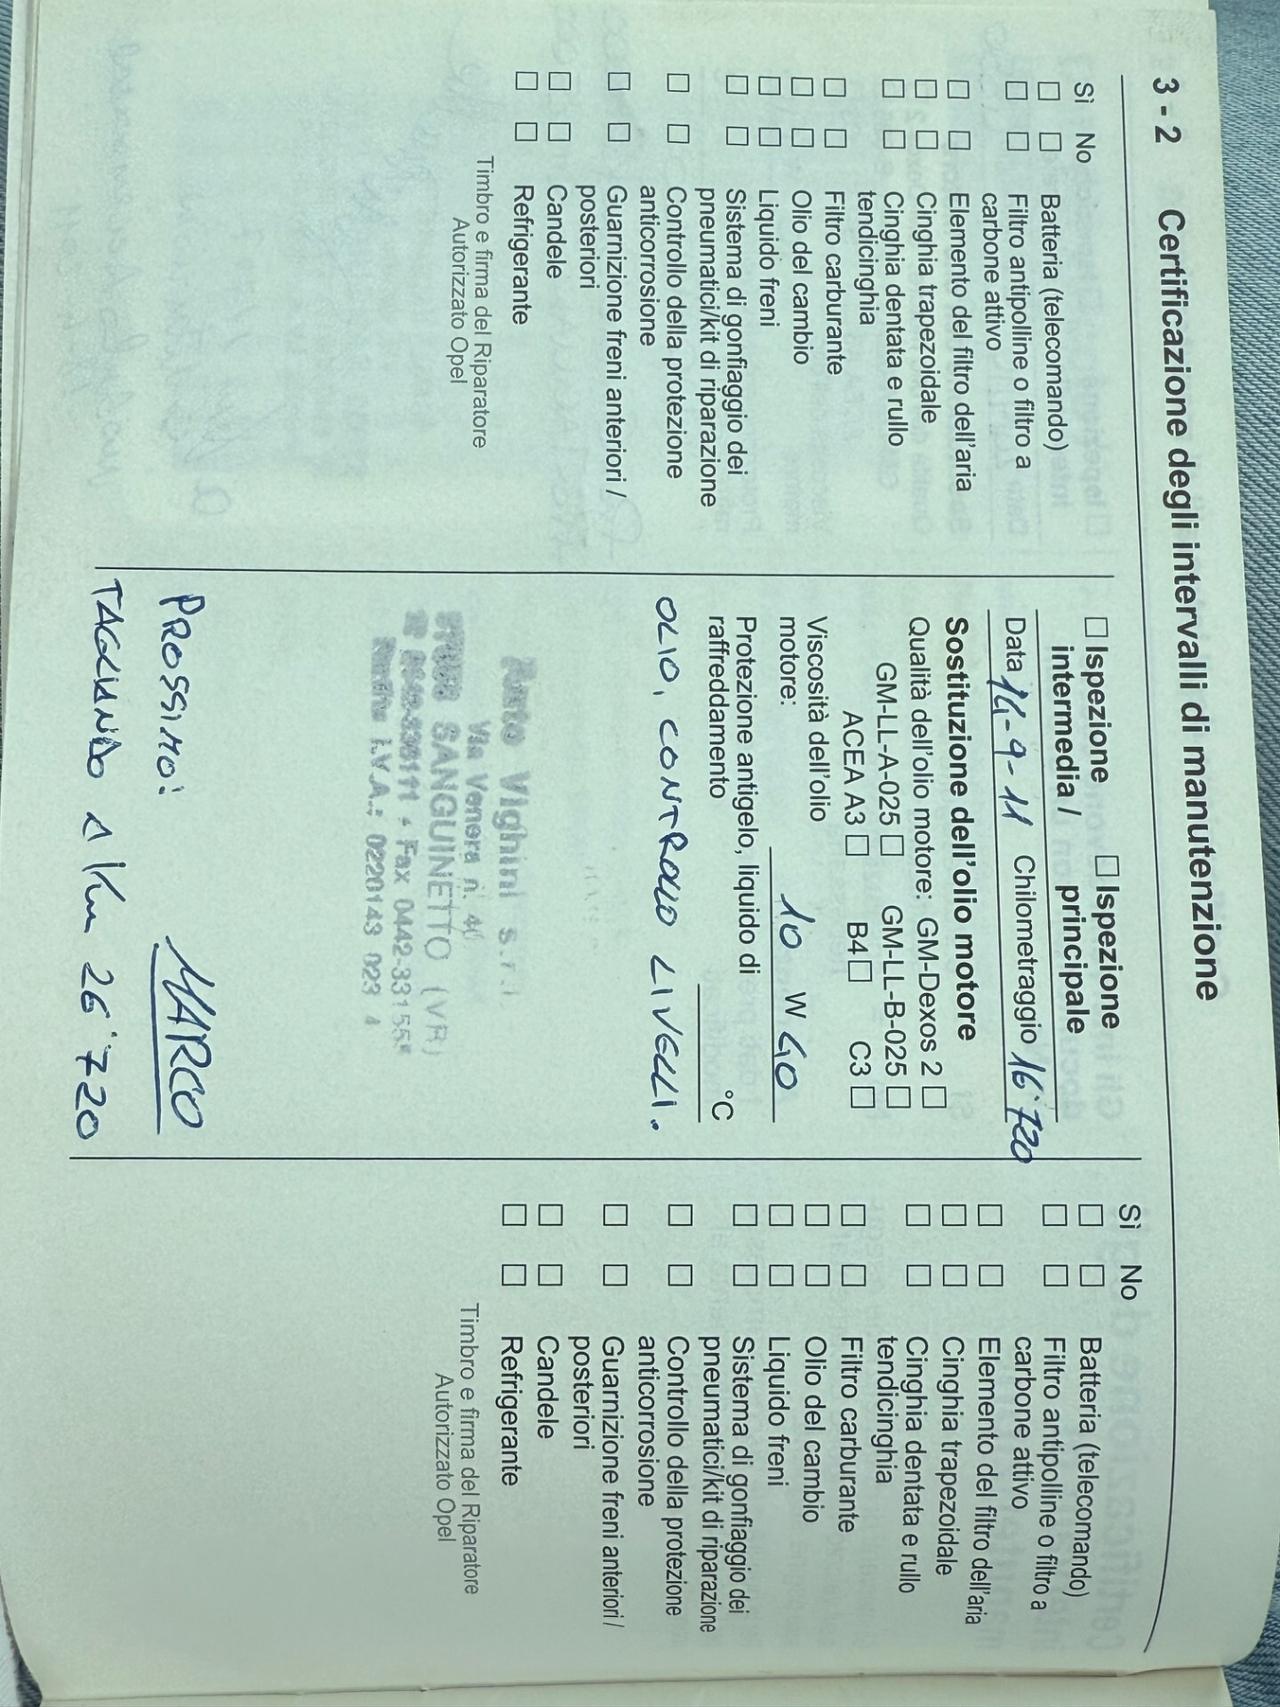 3 - 2 Certificazione degli intervalli di manutenzione
Sì No
☐ ☐ Batteria (telecomando)
☐ ☐ Filtro antipolline o filtro a
carbone attivo
☐ ☐ Elemento del filtro dell'aria
☐ ☐ Cinghia trapezoidale
☐ ☐ Cinghia dentata e rullo
tendicinghia
☐ ☐ Filtro carburante
☐ ☐ Olio del cambio
☐ ☐ Liquido freni
☐ ☐ Sistema di gonfiaggio dei
pneumatici/kit di riparazione
☐ ☐ Controllo della protezione
anticorrosione
☐ ☐ Guarnizione freni anteriori /
posteriori
☐ ☐ Candele
☐ ☐ Refrigerante
Timbro e firma del Riparatore
Autorizzato Opel
☐ Ispezione ☐ Ispezione
intermedia / principale
Data 14-9-11 Chilometraggio 16'720
Sostituzione dell'olio motore
Qualità dell'olio motore: GM-Dexos 2 ☐
GM-LL-A-025 ☐ GM-LL-B-025 ☐
ACEA A3 ☐ B4 ☐ C3 ☐
Viscosità dell'olio
motore: 10 W 40
Protezione antigelo, liquido di
raffreddamento °C
OLIO, CONTROLLO LIVELLI.
Auto Vighini s.r.l.
Via Venera n. 40
SANGUINETTO (VR)
Fax 0442-331555
I.V.A.: 0220143 023 4
PROSSIMO: MARCO
TAGLIANDO A Km 26'720
Sì No
☐ ☐ Batteria (telecomando)
☐ ☐ Filtro antipolline o filtro a
carbone attivo
☐ ☐ Elemento del filtro dell'aria
☐ ☐ Cinghia trapezoidale
☐ ☐ Cinghia dentata e rullo
tendicinghia
☐ ☐ Filtro carburante
☐ ☐ Olio del cambio
☐ ☐ Liquido freni
☐ ☐ Sistema di gonfiaggio dei
pneumatici/kit di riparazione
☐ ☐ Controllo della protezione
anticorrosione
☐ ☐ Guarnizione freni anteriori /
posteriori
☐ ☐ Candele
☐ ☐ Refrigerante
Timbro e firma del Riparatore
Autorizzato Opel